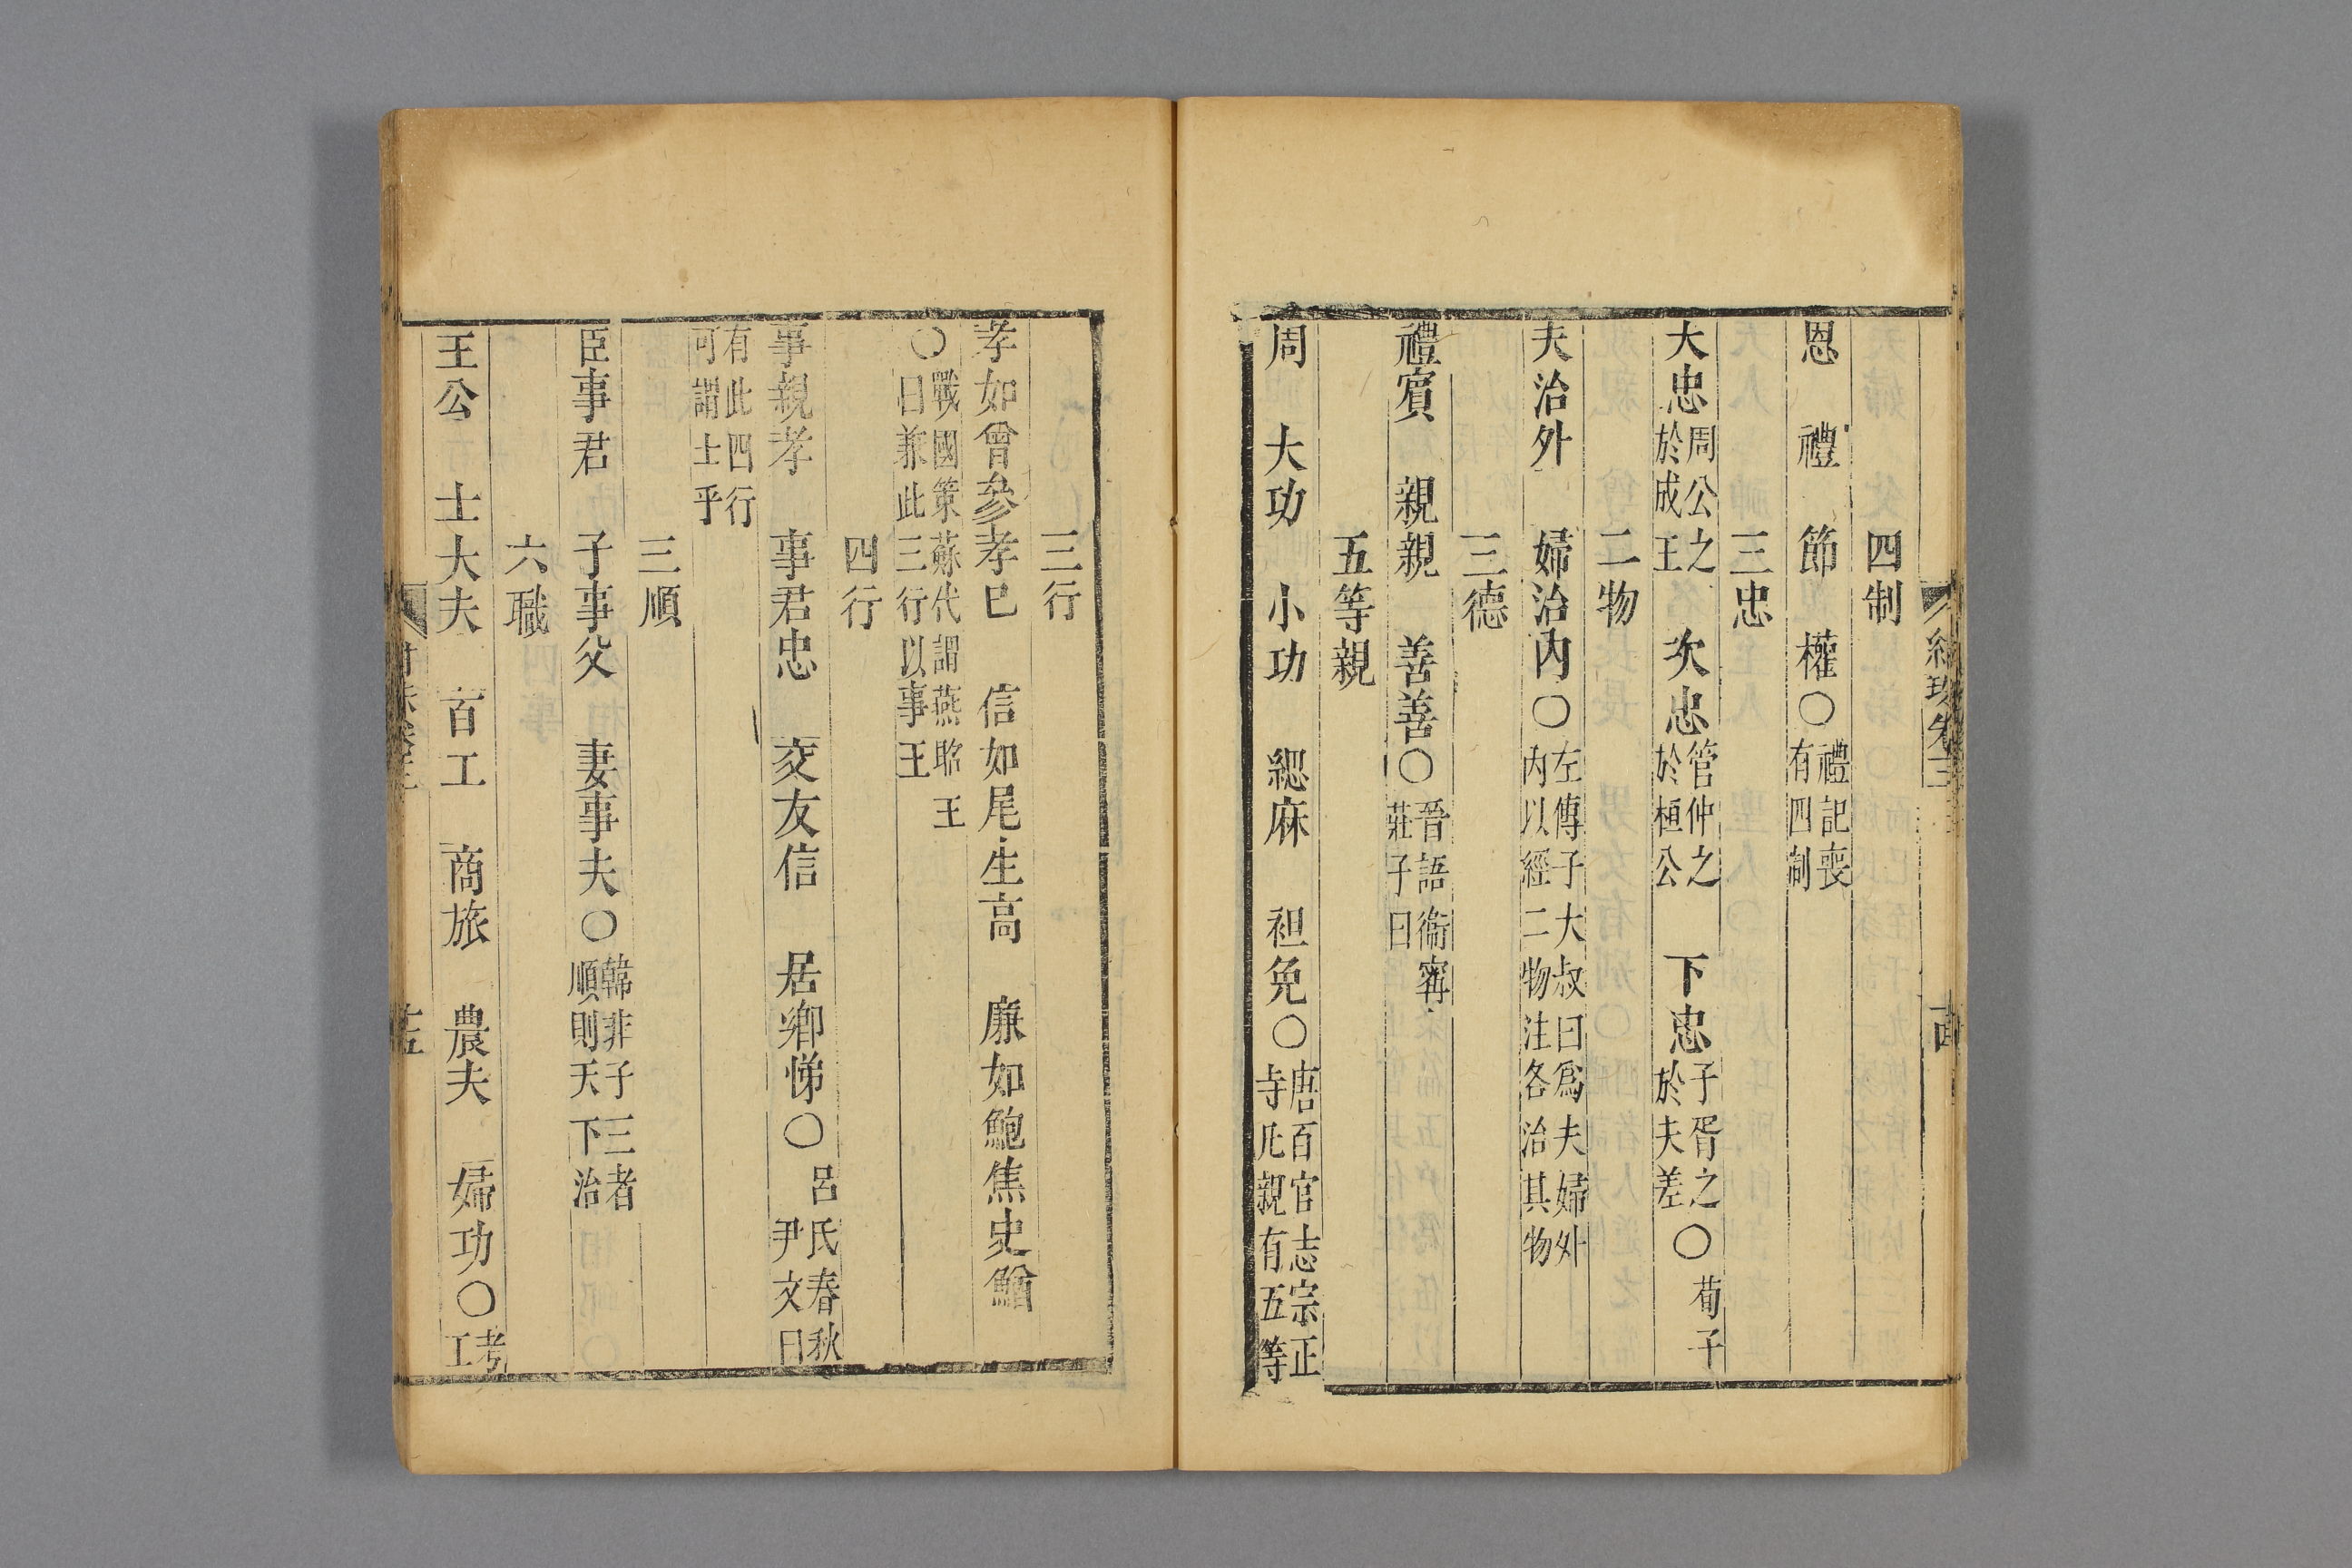 四制
恩　禮　節　權○禮記喪有四制
三忠
大忠周公之於成王　次忠管仲之於桓公　下忠子胥之於夫差○荀子
二物
夫治外　婦治內○左傳子大叔曰爲夫婦外內以經二物注各治其物
三德
禮賔　親親　善善○晉語衞甯莊子曰
五等親
周　大功　小功　緦麻　袒免○唐百官志宗正寺凡親有五等
三行
孝如曾參孝已　信如尾生高　廉如鮑焦史鰌
○戰國策蘇代謂燕昭王曰兼此三行以事王
四行
事親孝　事君忠　交友信　居鄉悌○呂氏春秋尹文曰
有此四行可謂士乎
三順
臣事君　子事父　妻事夫○韓非子三者順則天下治
六職
王公　士大夫　百工　商旅　農夫　婦功○考工